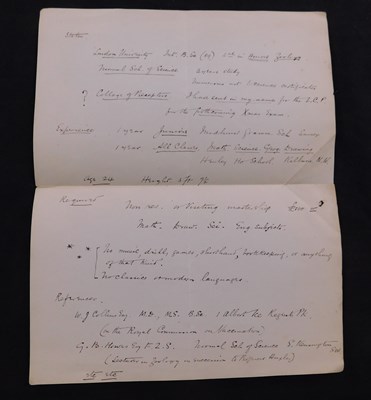 Status
London University Int. B.Sc (Hs) 2nd in Honours Zoology
Normal Sch. of Science 3 years study
Numerous 1st & minor certificates
? College of Preceptors I have sent in my name for the L.C.P
for the forthcoming Xmas Exam.
Experience 1 year Juniors Gram. Sch.
1 year All Classes, Math Science Eng Drawing
Henley Ho School Kilburn N.W.
Age 24 Height 5ft 7½
Required
Non res. or visiting mastership
Math. Draw. Sci. Eng subjects.
No music, drill, games, shorthand, bookkeeping, or anything
of that kind.
No classics or modern languages.
References
W. J. Collins Esq M.D., M.S. B.Sc. 1 Albert Ter Regents Pk.
(on the Royal Commission on Vaccination)
G. B. Howes Esq F.L.S. Normal Sch of Science S. Kensington
(Lecturer in Zoology in succession to Professor Huxley)
etc etc